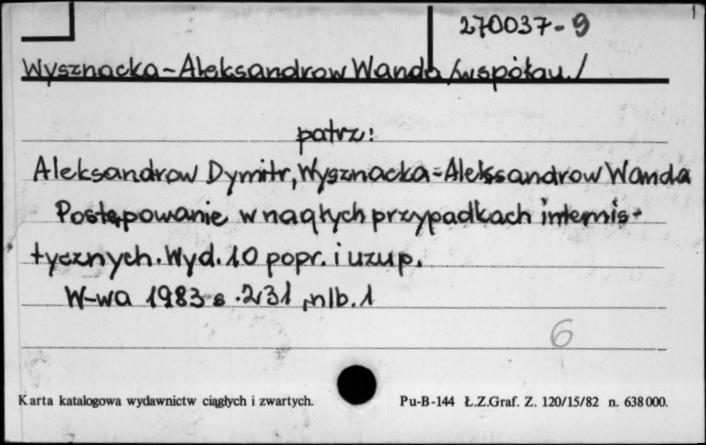 270037-9
Wysznacka-Aleksandrow Wanda /współau./
patrz:
Aleksandrow Dymitr, Wysznacka-Aleksandrow Wanda
Postępowanie w nagłych przypadkach internis-
tycznych. Wyd. 10 popr. i uzup.
W-wa 1983 s. 231, nlb. 1
6
Karta katalogowa wydawnictw ciągłych i zwartych. Pu-B-144 Ł.Z.Graf. Z. 120/15/82 n. 638000.